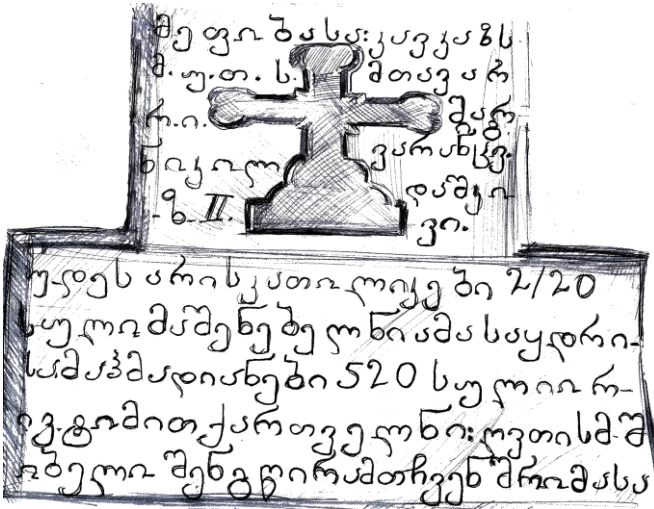 მეფობასა: კავკაზს
მ. უ. თ. ს. მთავარ
რ. ი. მარ
ნიკილ ვარანცვ.
ზ II. დამკი
ვი.
უდეს არის კათილიკები 2/20
სულიმაშენებელნიამა საყდრი
სამაჰმადიანები 520 სული რ
ივ. ტომით ქართველნი: ღვთის მ. შ
ობელი შენგწირამთჩვენ შრომასა